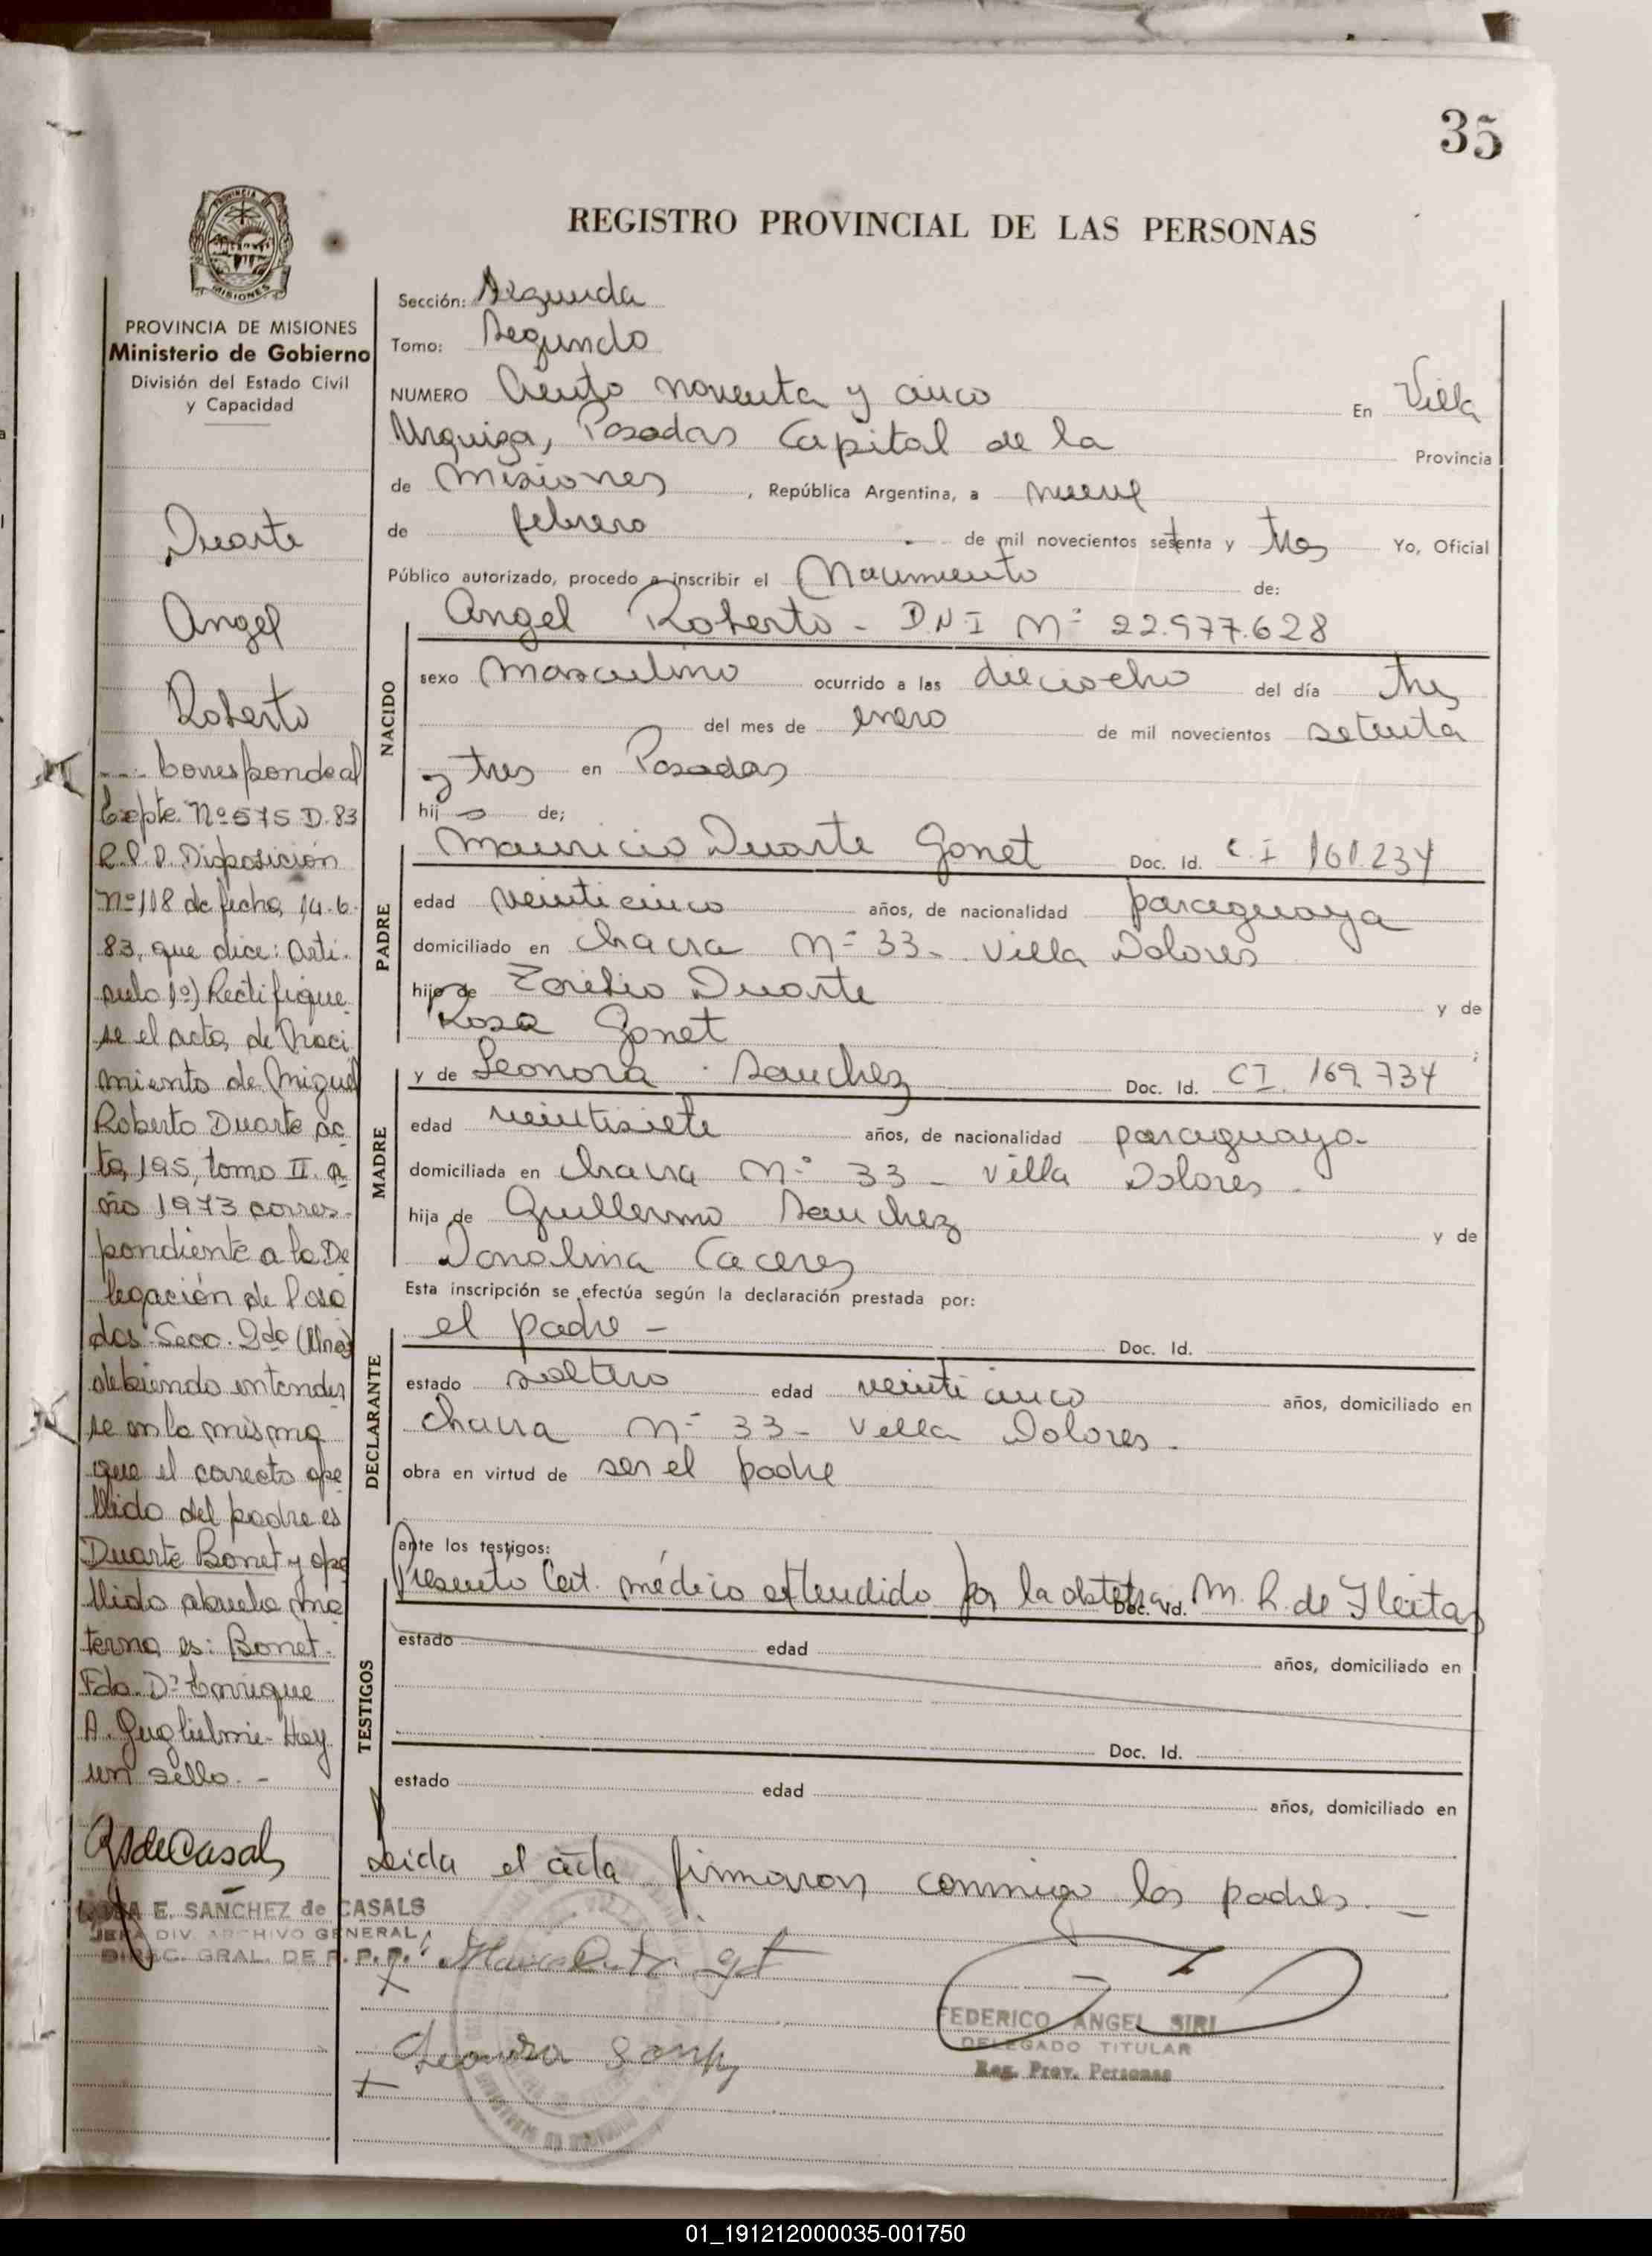 35
REGISTRO PROVINCIAL DE LAS PERSONAS
MISIONES
PROVINCIA DE MISIONES
Ministerio de Gobierno
División del Estado Civil
y Capacidad
Duarte
Angel
Roberto
Corresponde al
Expte. Nº 575 D. 83
R.P.P. Disposición
nº 118 de fecha 14.6.
83, que dice: Arti-
culo 1º) Rectifique
se el acta de Naci
miento de Miguel
Roberto Duarte ac
ta 195, tomo II. a
ño 1973 corres-
pondiente a la De
legación de Posa
das Secc. 2da
debiendo entender
se en la misma
que el correcto ape
llido del padre es
Duarte Bonet y ape
llido abuela ma
terna es: Bonet.
Fdo. Dr Enrique
A. Guglielmi- Hay
un sello. -
E. SANCHEZ de CASALS
JEFA DIV. ARCHIVO GENERAL
DIREC. GRAL. DE R.P.P.
Sección: Segunda
Tomo: Segundo
NUMERO Ciento noventa y cinco En Villa
Urquiza, Posadas Capital de la Provincia
de Misiones, República Argentina, a nueve
de febrero de mil novecientos setenta y tres Yo, Oficial
Público autorizado, procedo a inscribir el Nacimiento de:
Angel Roberto - D.N.I Nº 22.977.628
NACIDO
sexo Masculino ocurrido a las dieciocho del día tres
del mes de enero de mil novecientos setenta
y tres en Posadas
hijo de;
PADRE
Mauricio Duarte Gonet Doc. Id. C.I 161.234
edad veinticinco años, de nacionalidad paraguaya
domiciliado en Chacra Nº 33- Villa Dolores
hijo de Duarte y de
Rosa Gonet
MADRE
y de Leonora Sanchez Doc. Id. CI. 169.734
edad veintisiete años, de nacionalidad paraguaya-
domiciliada en Chacra Nº 33 - Villa Dolores -
hija de Guillermo Sanchez y de
Donalina Caceres
Esta inscripción se efectúa según la declaración prestada por:
DECLARANTE
el padre - Doc. Id.
estado soltero edad veinticinco años, domiciliado en
chacra Nº 33- Villa Dolores -
obra en virtud de ser el padre
ante los testigos:
TESTIGOS
Presento Cert. médico extendido por la obstetra M. R. de Fleitas
Doc. Id.
estado edad años, domiciliado en
Doc. Id.
estado edad años, domiciliado en
Leida el acta firmaron conmigo los padres. -
FEDERICO ANGEL SIRI
DELEGADO TITULAR
Reg. Prov. Personas
01_191212000035-001750